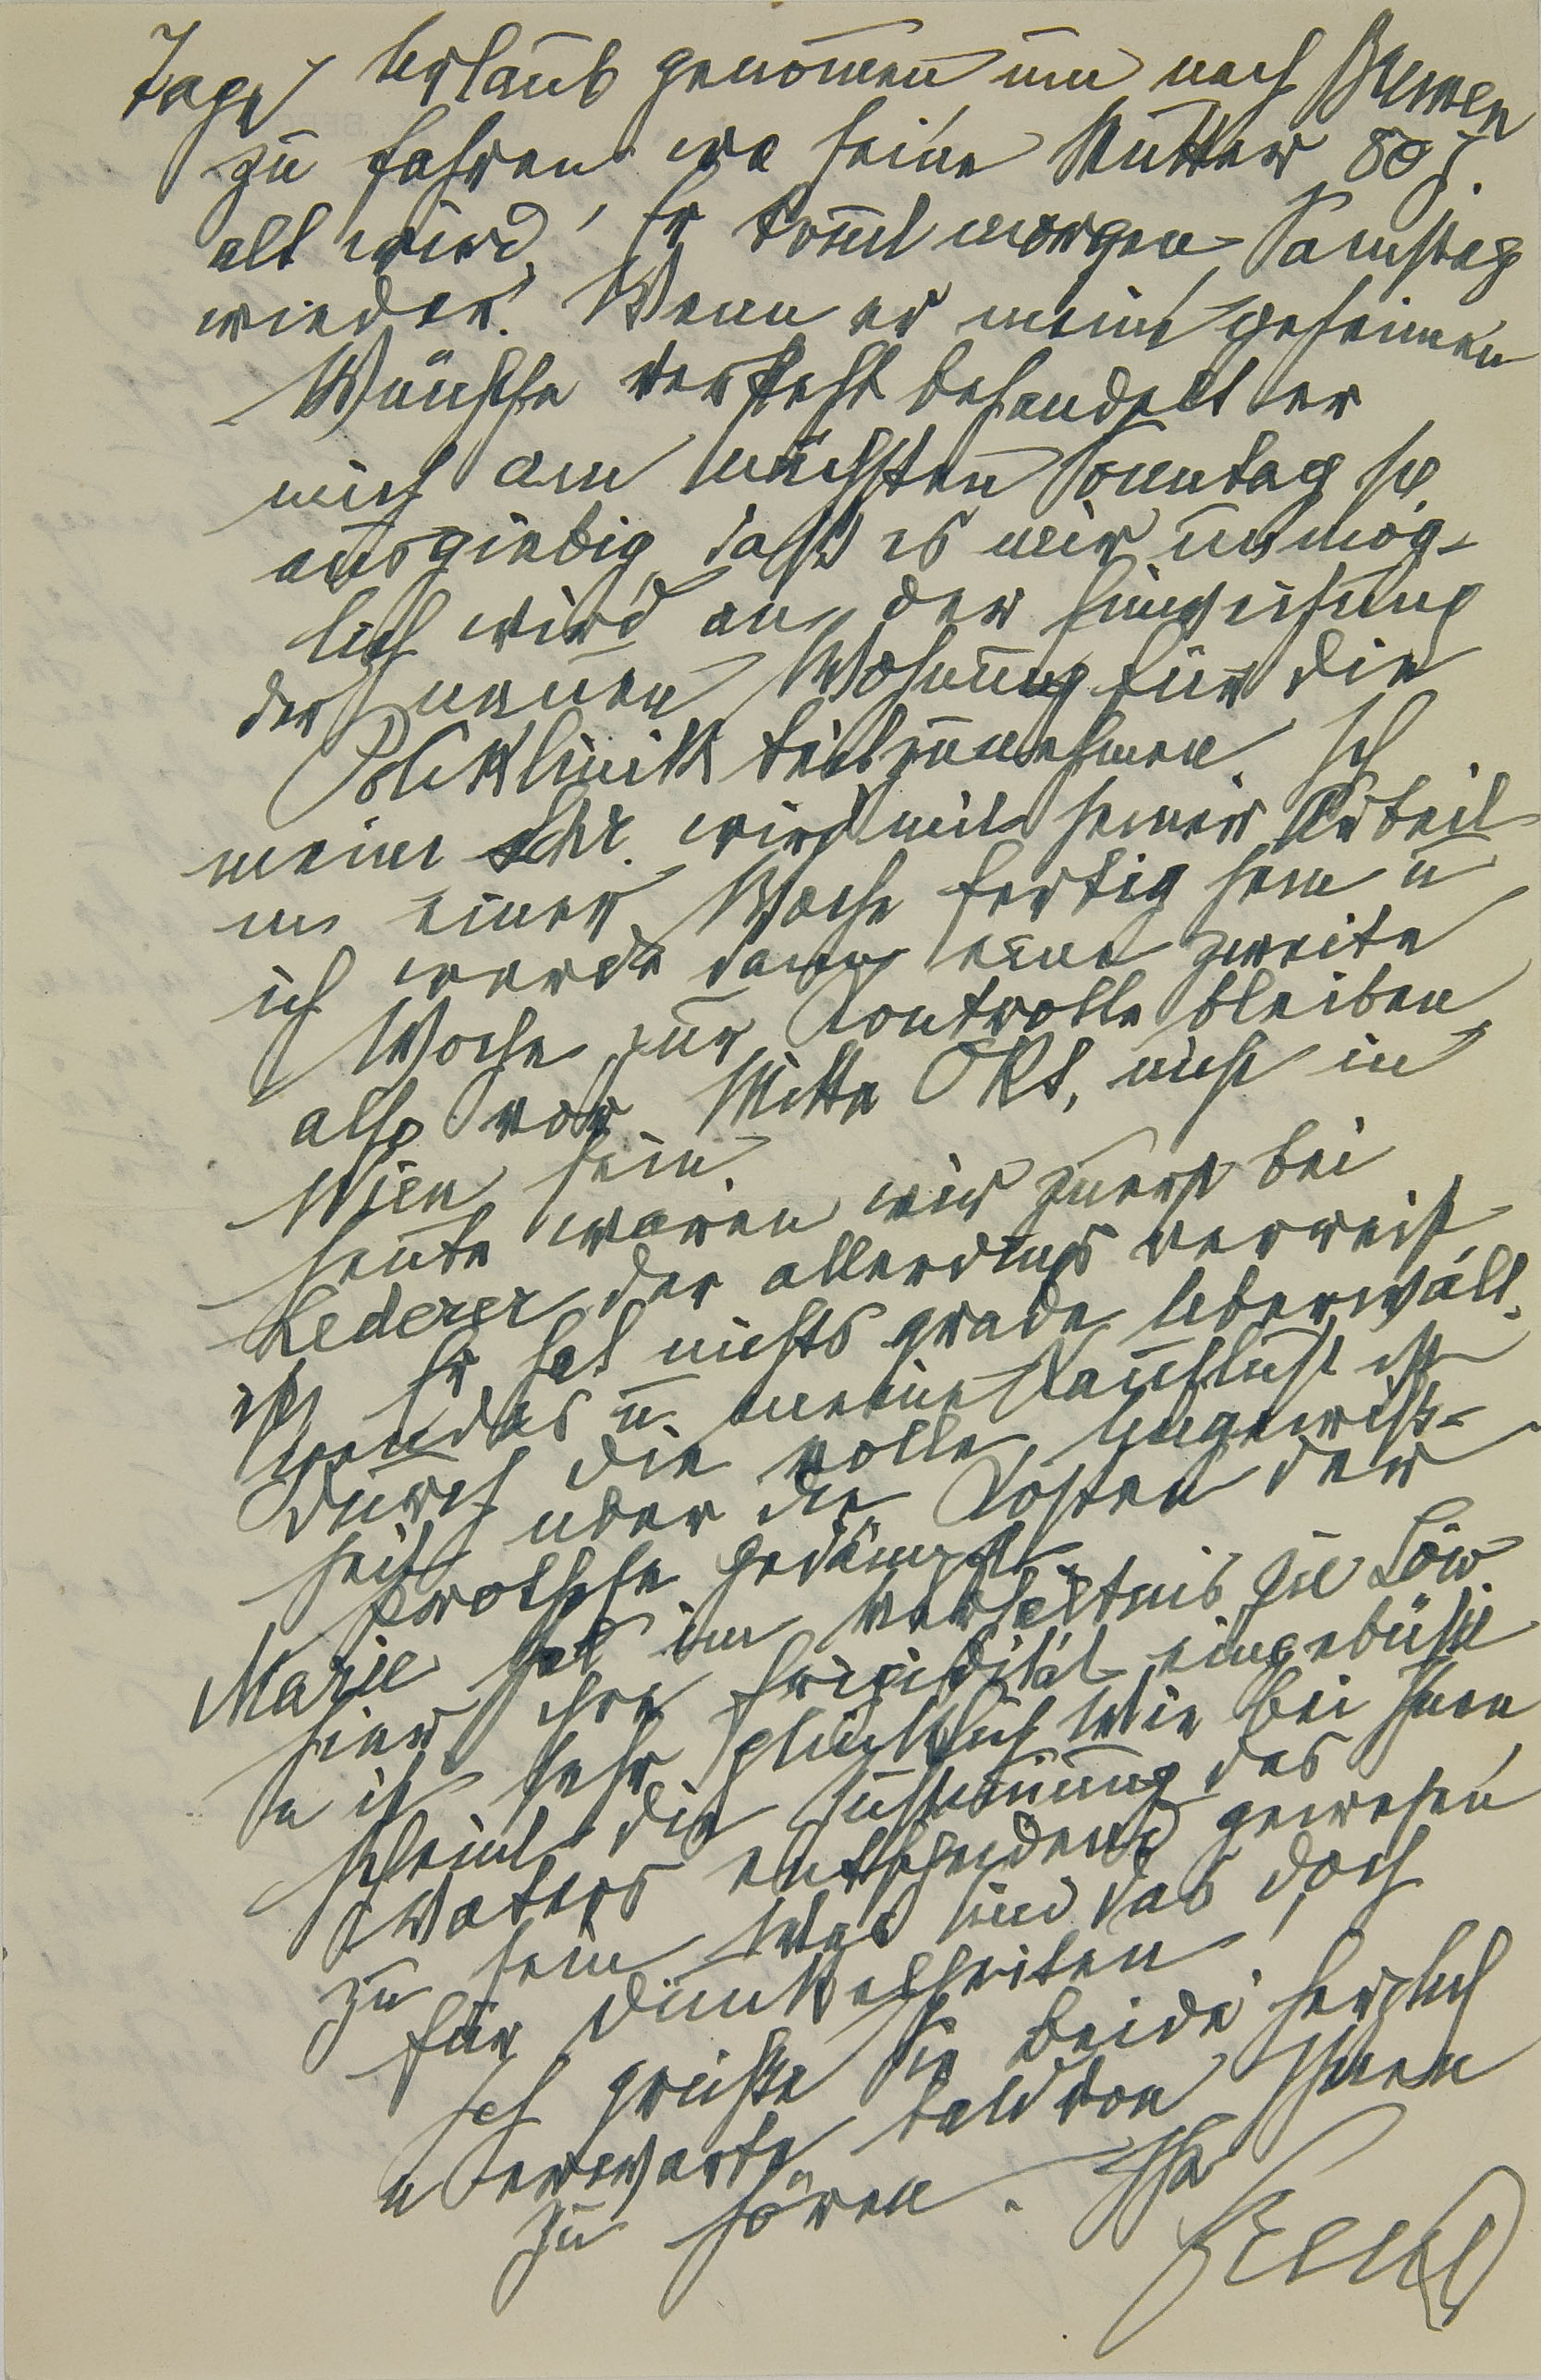 Tage Urlaub genom̄en um nach Bremen
zu fahren wo seine Mutter 80 J.
alt wird. Er kom̄t morgen Samstag
wieder. Wenn er meine geheimen
Wünsche versteht behandelt er
mich am nächsten Sonntag so
ausgiebig daß es mir unmög-
lich wird an der Einweihung
der neuen Wohnung für die
Poliklinik teilzunehmen. Ich
meine Schr. wird mit seiner Arbeit
in einer Woche fertig sein u
ich werde dann eine zweite
Woche zur Kontrolle bleiben
also vor Mitte Okt. nicht in
Wien sein.
Heute waren wir zuerst bei
Lederer der allerdings verreist
ist. Er hat nichts grade Überwält.
gendes u meine Kauflust ist
durch die volle Ungewiß-
heit über die Kosten der
Prothese gedämpft.
Marie hat im Verhältnis zu Löw.
hier ihre Frigidität eingebüßt
u ist sehr glücklich Wie bei Ihnen
scheint die Zustim̄ung des
Vaters entscheidend gewesen
zu sein Was sind das doch
für Dunkelheiten!
Ich grüße Sie beide herzlich
u erwarte bald von Ihnen
zu hören. Ihr
Freud